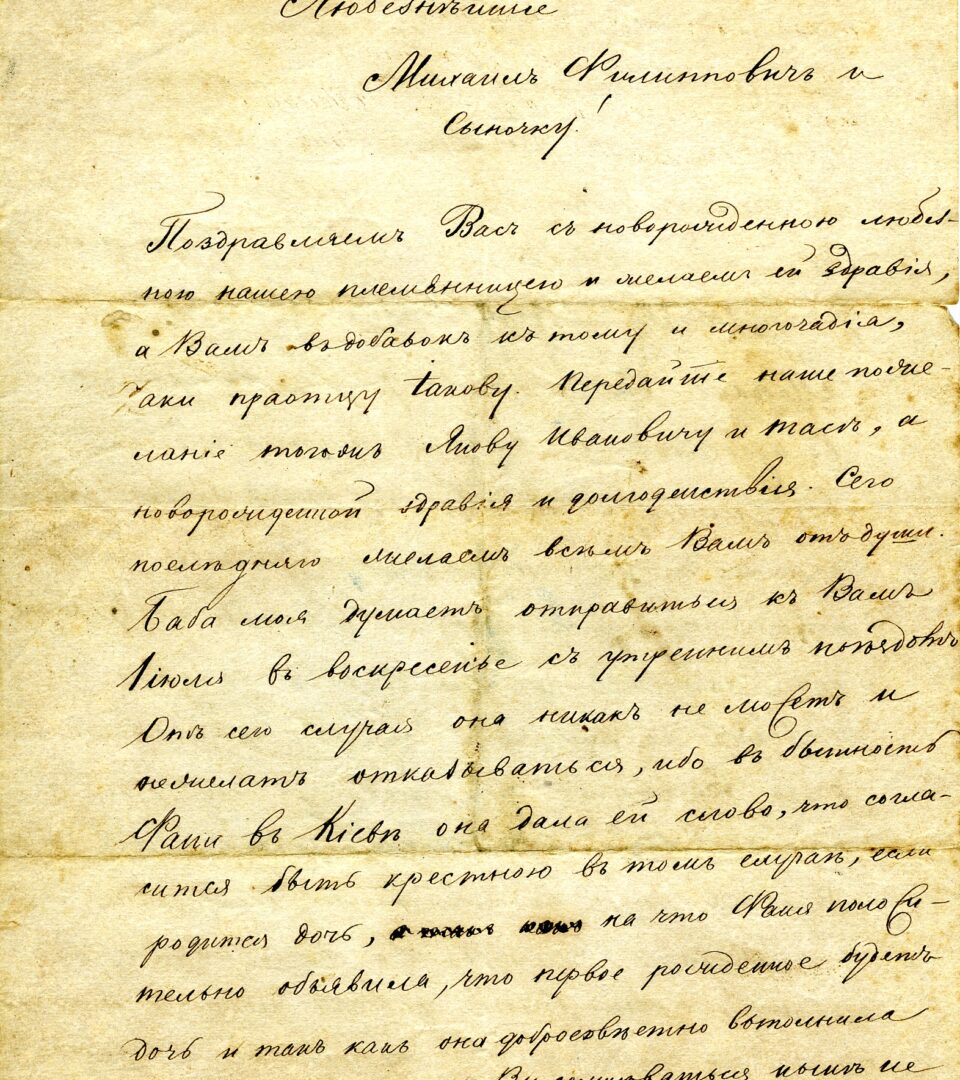 Любезнѣйшие
Михаилъ Филипповичъ и
Сыночку!
Поздравляемъ Васъ съ новорожденною любез-
ною нашею племянницею и желаемъ ей здравія,
а Вамъ въ добавокъ къ тому и многочадія,
аки праотцу Іакову. Передайте наше поже-
ланіе тогожъ Якову Ивановичу и Тасѣ, а
новорожденной здравія и долгоденствія. Сего
послѣдняго желаемъ всѣмъ Вамъ отъ души.
Баба моя думаетъ отправиться къ Вамъ
1 іюля въ воскресенье съ утреннимъ поѣздомъ
Отъ сего случая она никакъ не можетъ и
нежелатъ отказываться, ибо въ бытность
Фани въ Кіевѣ она дала ей слово, что согла-
сится быть крестною въ томъ случаѣ, если
родится дочь, на что Фаня положи-
тельно объявила, что первое рожденное будетъ
дочь и такъ какъ она добросовѣстно выполнила
нынѣ не